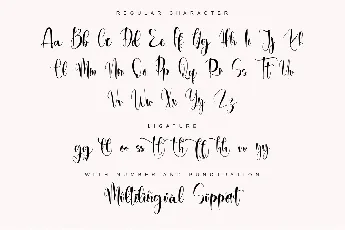 REGULAR CHARACTER
Aa Bb Cc Dd Ee Ff Gg Hh Ii Jj Kk
Ll Mm Nn Oo Pp Qq Rr Ss Tt Uu
Vv Ww Xx Yy Zz
LIGATURE
gg ll oo ss tt th ff hh rr yy
WITH NUMBER AND PUNCTUATION
Multilingual Support